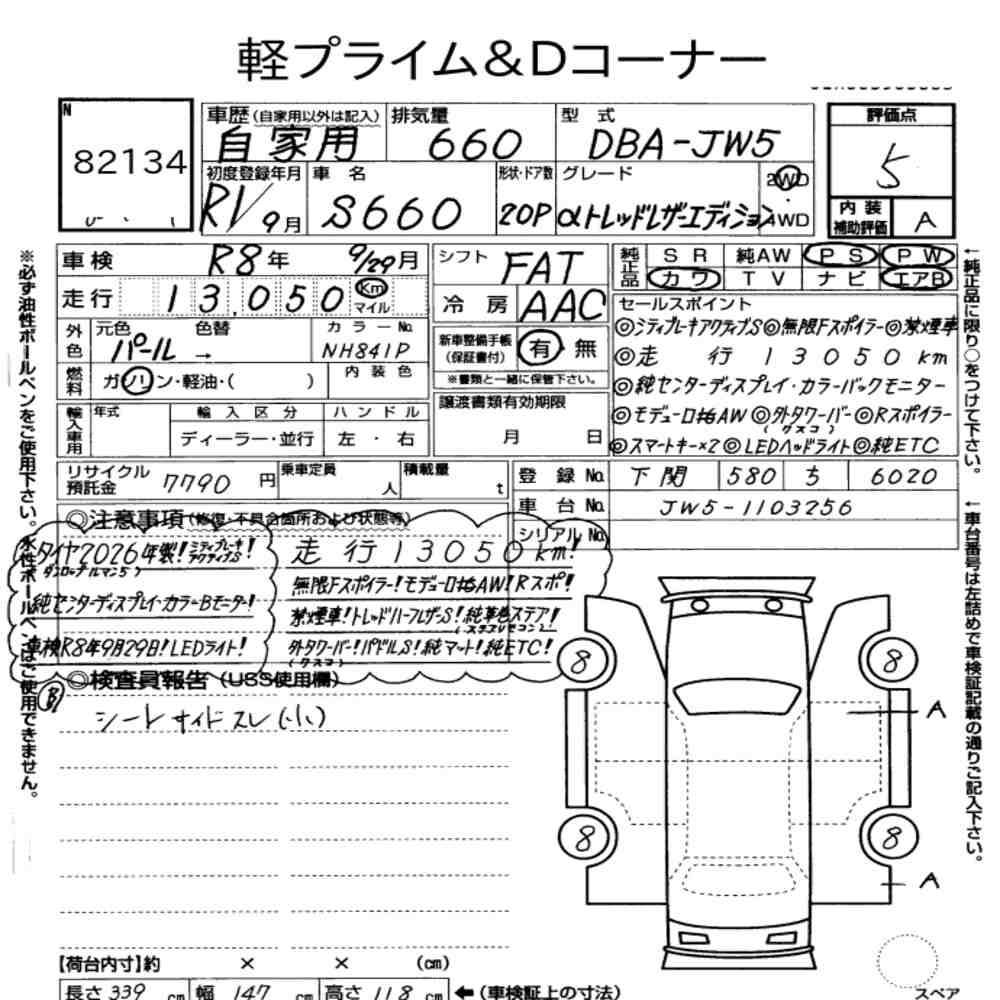 軽プライム&Dコーナー
N
82134
車歴 (自家用以外は記入)
自家用
排気量
660
型式
DBA-JW5
評価点
5
内装補助評価
A
初度登録年月
R1/9月
車名
S660
形状・ドア数
20P
グレード
αトレッドレザーエディション
2WD
4WD
車検
R8年 9/29月
走行
13,050
Km
マイル
シフト
FAT
冷房
AAC
純正品
SR 純AW PS PW
カワ TV ナビ エアB
外色
元色 色替
パール →
カラーNo.
NH841P
燃料
ガソリン・軽油・( )
内装色
新車整備手帳(保証書付)
有 無
※書類と一緒に保管下さい。
セールスポイント
◎ミティブレーキアクティブS◎無限Fスポイラー◎禁煙車
◎走行13050km
◎純センターディスプレイ・カラーバックモニター
◎モデューロ16AW◎外タワーバー◎Rスポイラー
(クスコ)
◎スマートキー×2◎LEDヘッドライト◎純ETC
輸入車用
年式
輸入区分
ハンドル
ディーラー・並行
左・右
譲渡書類有効期限
月 日
リサイクル預託金
7790円
乗車定員
人
積載量
t
登録No.
下関 580 ち 6020
車台No.
JW5-1103256
シリアルNo.
◎注意事項(修復・不具合箇所および状態等)
タイヤ2026年製!ミティブレーキアクティブS!
純センターディスプレイ・カラーBモニター!
車検R8年9月29日!LEDライト!
走行13050km!
無限Fスポイラー!モデューロ16AW!Rスポ!
禁煙車!トレッドハーフレザーS!純革巻ステア!
外タワーバー!パドルS!純マット!純ETC!
(クスコ)
◎検査員報告 (USS使用欄)
B
シートサイドスレ(小)
8
8
8
8
A
A
スペア
【荷台内寸】約 × × (cm)
長さ 339 cm 幅 147 cm 高さ 118 cm ←(車検証上の寸法)
※必ず油性ボールペンをご使用下さい。水性ボールペンはご使用できません。
←純正品に限り○をつけて下さい。
←車台番号は左詰めで車検証記載の通りご記入下さい。